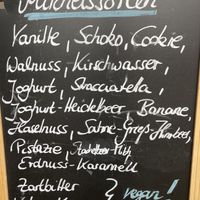 Vanille, Schoko, Cookie,
Walnuss, Kirschwasser,
Joghurt, Stracciatella,
Joghurt-Heidelbeer, Banane,
Haselnuss, Sahne-Gries-
Pistazie,
Erdnuss-Karamell
Zartbitter } vegan!